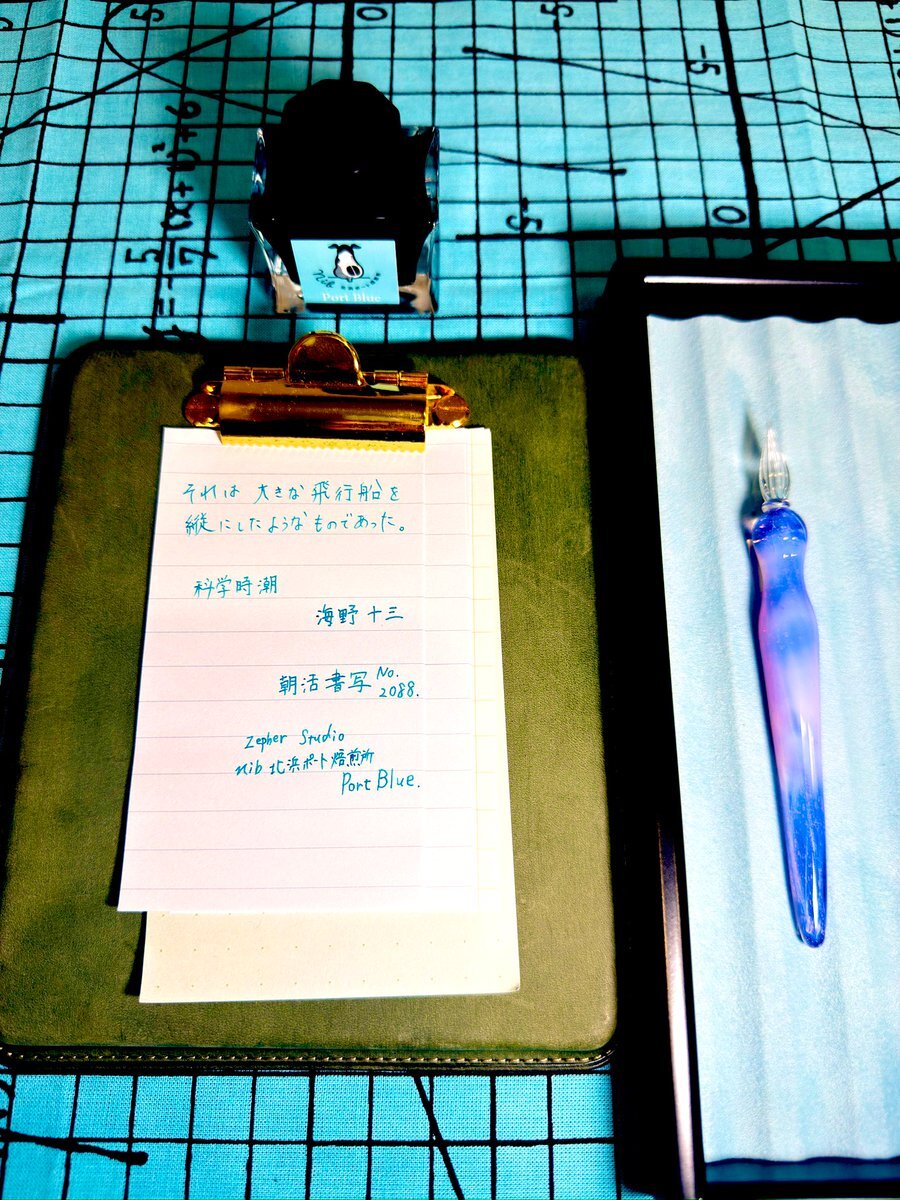 Nib
Port Blue
それは 大きな飛行船を
縦にしたようなものであった。
科学時潮
海野十三
朝活書写 No.
2088.
Zepher Studio
nib 北浜ポート焙煎所
Port Blue.
5
0
-5
-5
-5
0